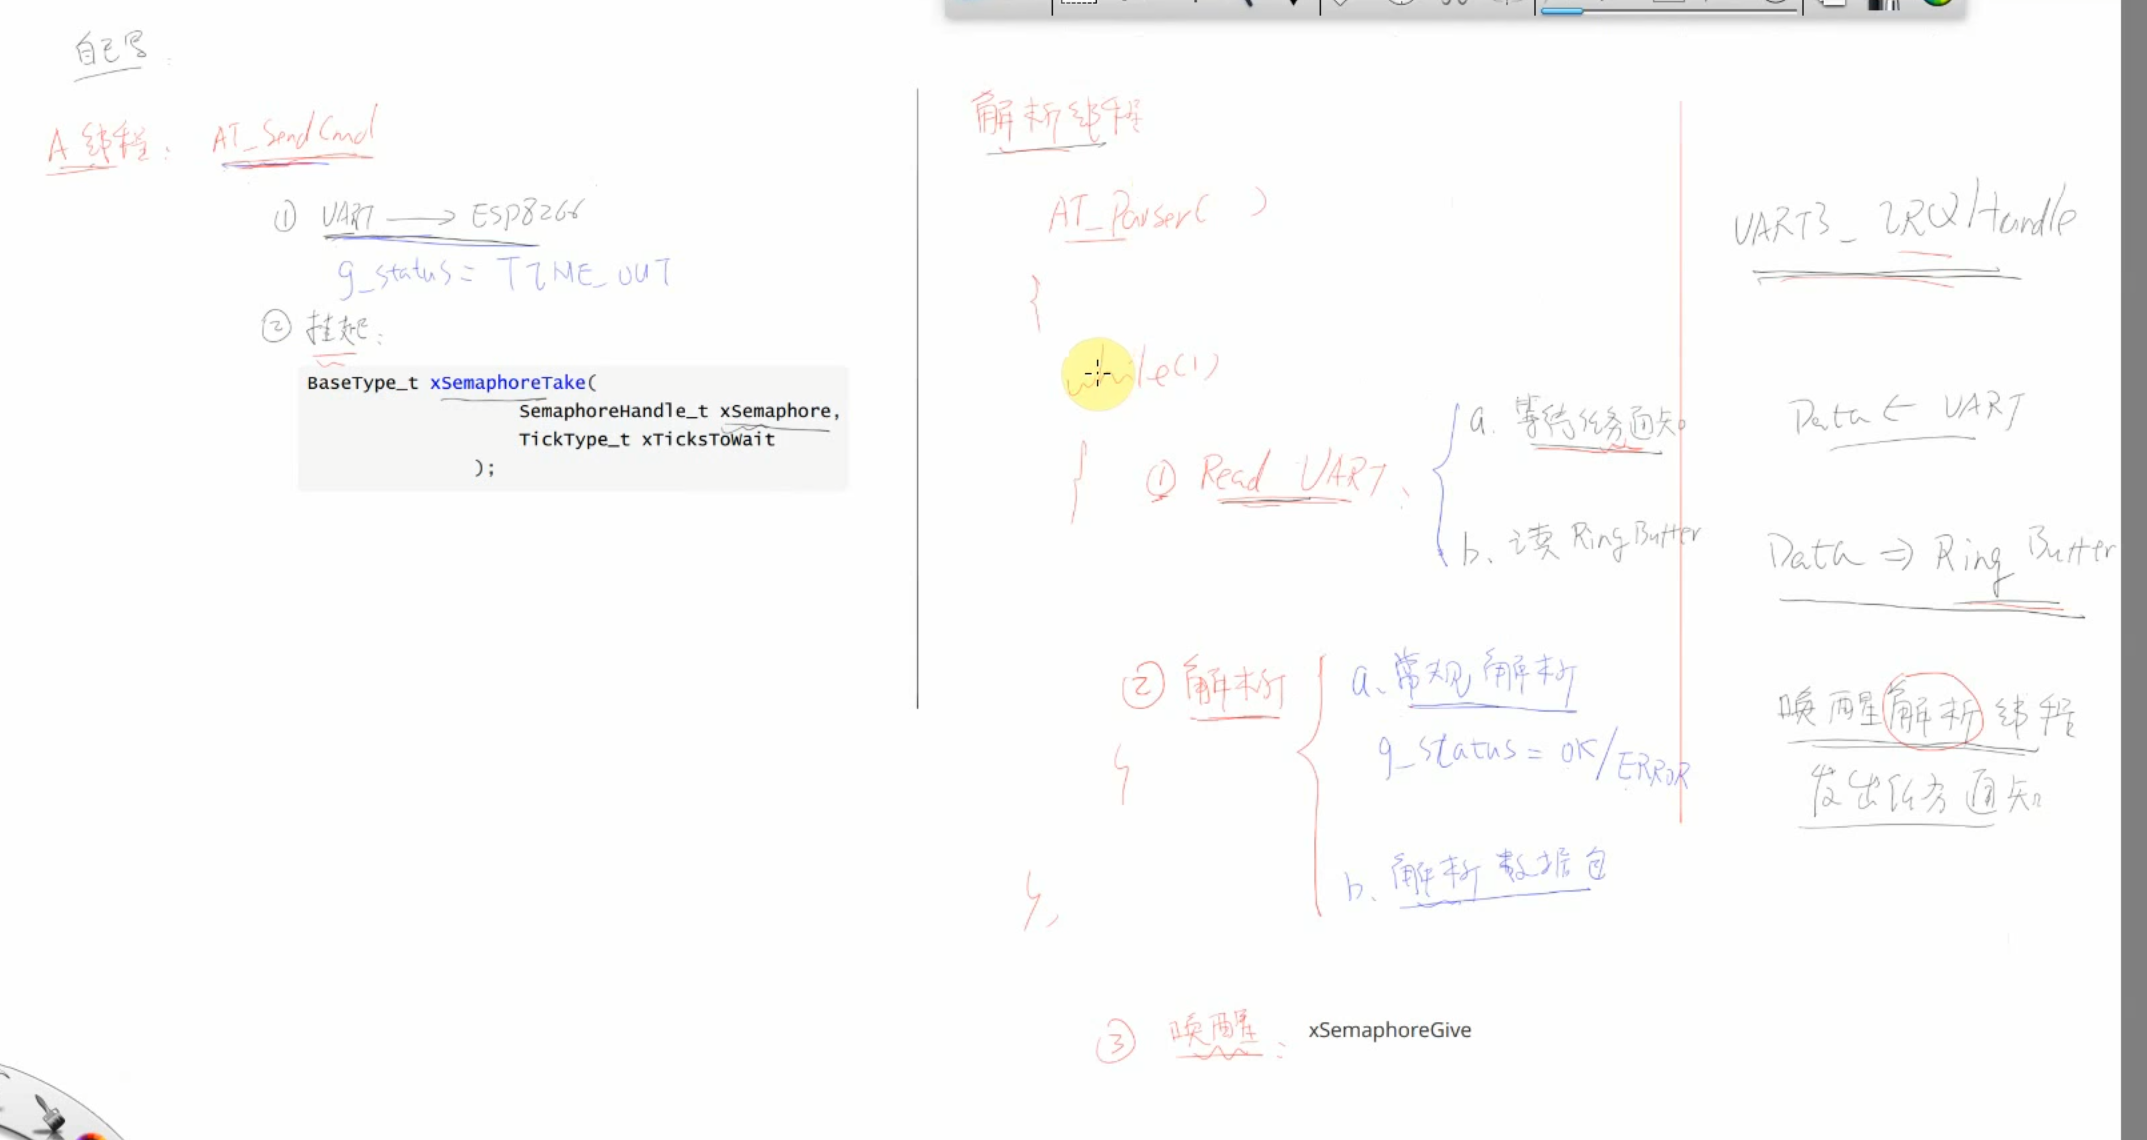 自己写
A线程: AT_SendCmd
① UART → ESP8266
g_status = TIME_OUT
② 挂起:
BaseType_t xSemaphoreTake(
SemaphoreHandle_t xSemaphore,
TickType_t xTicksToWait
);
解析线程
AT_Parser( )
{
while(1)
{ ① Read UART:
a. 等待任务通知
b. 读 RingBuffer
② 解析
a. 常规解析
g_status = OK/ERROR
b. 解析数据包
}
}
③ 唤醒: xSemaphoreGive
UART3_IRQ/Handle
Data ← UART
Data ⇒ Ring Buffer
唤醒解析线程
发出任务通知